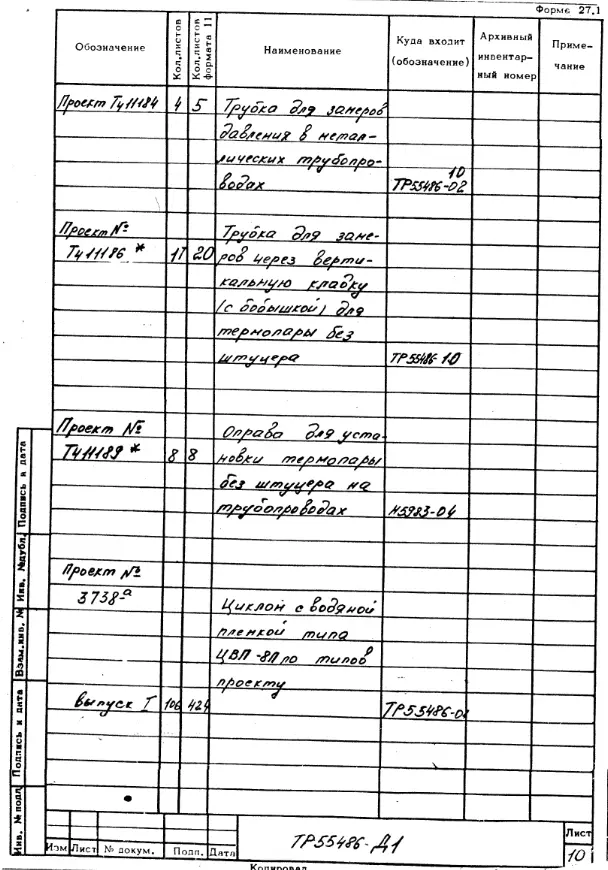 Форма 27.1
Обозначение
Кол.листов
Кол.листов формата 11
Наименование
Куда входит (обозначение)
Архивный инвентар-ный номер
Приме-чание
Проект Тч11184 4 5 Трубка для замеров
давления в метал-
лических трубопро- 10
водах ТР55486-02
Проект №
Трубка для заме-
Тч11186 * 17 20 ров через верти-
кальную кладку
(с бобышкой) для
термопары без
штуцера ТР55486-10
Проект №
Оправа для уста-
Тч11189 * 8 8 новки термопары
без штуцера на
трубопроводах Н5983-04
Проект №
3738а Циклон с водяной
пленкой типа
ЦВП-8Л по типов
проекту
Выпуск I 106 424 ТР55486-0
Инв. № подл
Подпись и дата
Взам.инв. №
Инв. №дубл.
Подпись и дата
Изм Лист № докум. Подп. Дата
ТР55486-Д1
Лист
10
Копировал